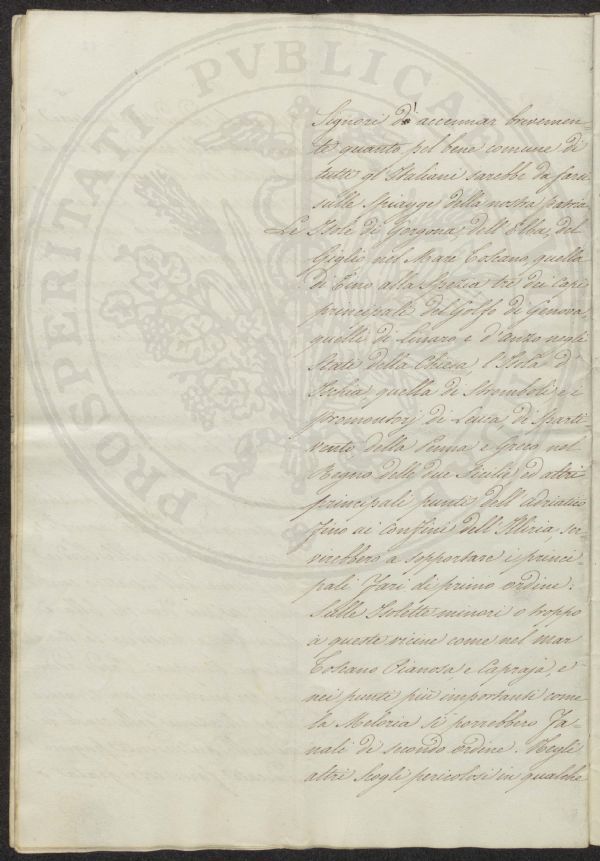 PROSPERITATI PVBLICAE
Signori d' accennar brevemen-
te quanto pel bene comune di
tutti gl' Italiani sarebbe da farsi
sulle Spiagge della nostra patria
Le Isole di Gorgona, dell' Elba, del
Giglio nel Mare Toscano, quella
di Tino alla Spezia tre dei Capi
principali del Golfo di Genova
quelli di Linaro e d'anzo negli
Stati della Chiesa, l' Isola d'
Ischia, quella di Stromboli e i
Promontorj di Leuca di Sparti
vento della Penna e Greco nel
Regno delle due Sicilie ed altri
principali punti dell' adriatico
fino ai confini dell' Illiria, ser
virebbero a sopportare i princi
pali Fari di primo ordine.
Sulle Isolette minori o troppo
a queste vicine come nel mar
Toscano Pianosa, e Capraja, e
nei punti più importanti come
la Meloria si porrebbero Fa-
nali di secondo ordine. Negli
altri Scogli pericolosi in qualche